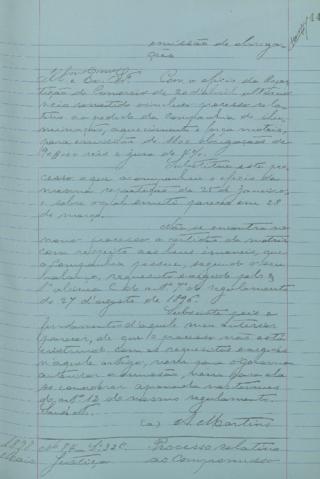 emissão de obriga-
ções
Ill.mo e Ex.mo Sr. Com o officio da Repar-
tição do Comercio de 20 d'abril ultimo
veio remettido o incluso processo rela-
tivo ao pedido da Companhia de illu-
minação, aquecimento e força motriz,
para emissão de obrigações de
reis e juro de
Substitue este pro-
cesso o que acompanhou o officio da
mesma repartição de 25 de Janeiro,
e sobre o qual emitti parecer em 28
de março.
Não se encontra no
novo processo a certidão da matriz
com respeito aos bens immoveis, que
a Companhia possue, segundo o seu
balanço, requesito exigido pelo §
1º alinea C do artº 7º do regulamento
de 27 d'agosto de 1896.
Subsiste pois o
fundamento d'aquelle meu anterior
parecer, de que o processo não está
instruido com os requesitos exigidos
n'aquelle artigo, nem para o governo
autorisar a emissão, nem para ella
se considerar aprovada nos termos
do artº 12 do mesmo regulamento.
(a) A. Martins
1898 Nº 87 - Lº 32 C. Processo relativo
Maio Justiça ao Compromisso